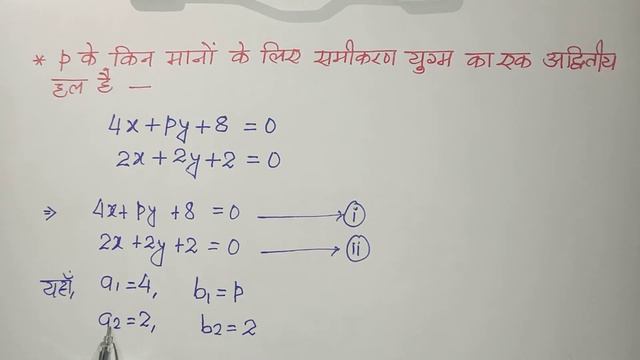 * p के किन मानों के लिए समीकरण युग्म का एक अद्वितीय
हल है —
4x+py+8 =0
2x+2y+2=0
⇒ 4x+py +8 =0 ⟶ (i)
2x +2y +2 =0 ⟶ (ii)
यहाँ, a₁=4, b₁=p
a₂=2, b₂=2